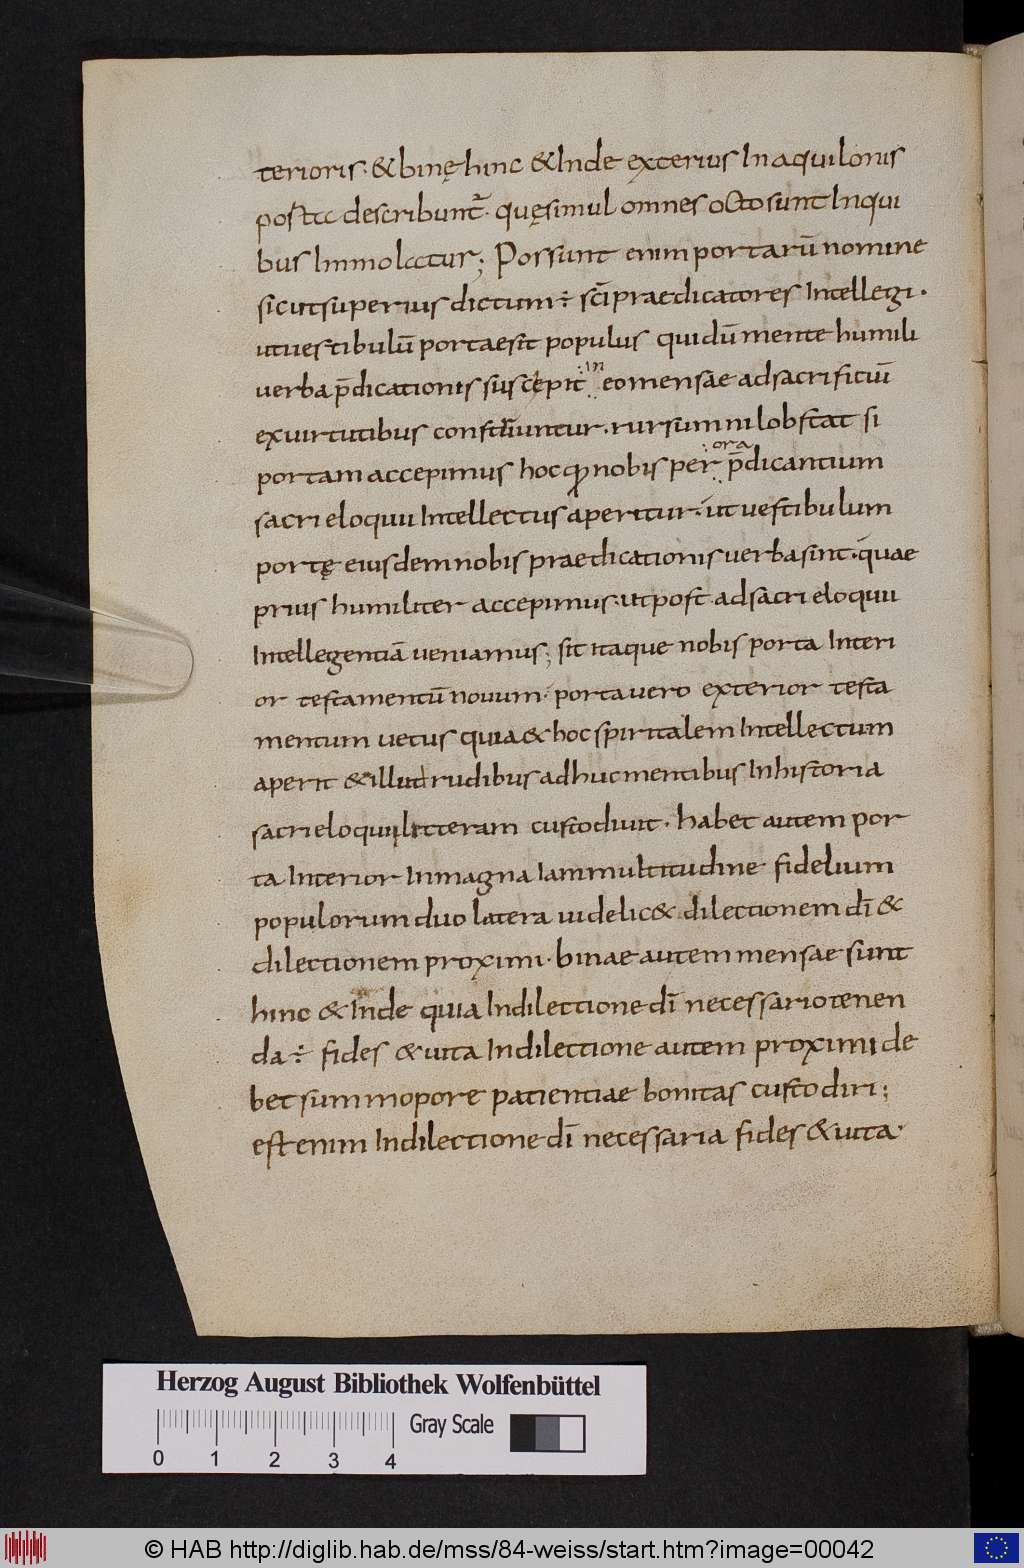 terioris · & binę hinc & Inde exterius In aquilonis
posta describunt᷒ · quę simul omnes octo sunt In qui
bus Immolatur ; Possunt enim portarū nomine
sicut superius dictum ÷ sc̄i praedicatores Intellegi ·
ut uestibulū portae sit populus qui dū mente humili
uerba p̄dicationis suscepit in eo mensae ad sacrificiū
ex uirtutibus construuntur · rursum nil obstat si
portam accepimus hoc qđ nobis per ora p̄dicantium
sacri eloquii Intellectus aperitur · ut uestibulum
portę eiusdem nobis praedicationis uerba sint · quae
prius humiliter accepimus · ut post ad sacri eloquii
Intellegentiā ueniamus ; sit itaque nobis porta Interi
or testamentū nouum · porta uero exterior testa
mentum uetus quia & hoc spiritalem Intellectum
aperit & illud rudibus adhuc mentibus In historia
sacri eloquii litteram custodiuit · habet autem por
ta Interior In magna Iam multitudine fidelium
populorum duo latera uidelic& dilectionem dī &
dilectionem proximi · binae autem mensae sunt
hinc & Inde quia In dilectione dī necessario tenen
da ÷ fides & uita In dilectione autem proximi de
bet summopere patientiae bonitas custodiri ;
est enim In dilectione dī necessaria fides & uita ·
Herzog August Bibliothek Wolfenbüttel
Gray Scale
0 1 2 3 4
© HAB http://diglib.hab.de/mss/84-weiss/start.htm?image=00042